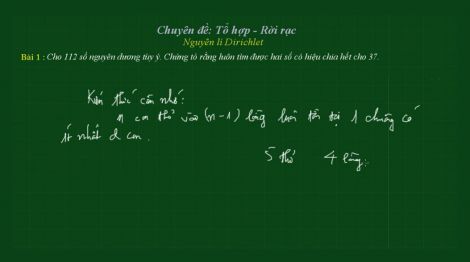 Chuyên đề: Tổ hợp - Rời rạc
Nguyên lí Dirichlet
Bài 1 : Cho 112 số nguyên dương tùy ý. Chứng tỏ rằng luôn tìm được hai số có hiệu chia hết cho 37.
Kiến thức cần nhớ:
n con thỏ vào (n-1) lồng luôn tồn tại 1 chuồng có
ít nhất 2 con.
5 thỏ 4 lồng: